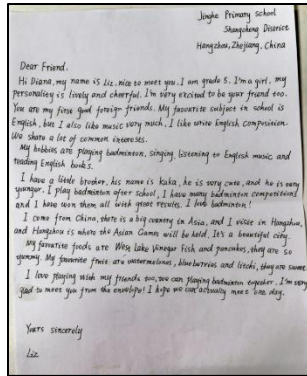 Jinghe Primary School
Shangcheng District
Hangzhou, Zhejiang, China
Dear Friend.
Hi Diana, my name is Liz, nice to meet you. I am grade 5. I'm a girl, my
personality is lively and cheerful. I'm very excited to be your friend too.
You are my first good foreign friends. My favourite subject in school is
English, but I also like music very much, I like write English composition.
We share a lot of common interests.
My hobbies are playing badminton, singing, listening to English music and
reading English books.
I have a little brother, his name is kaka, he is very cute, and he is very
younger. I play badminton after school, I have many badminton competitions
and I have won them all with great results, I love badminton!
I come from China, there is a big country in Asia, and I in Hangzhou,
and Hangzhou is where the Asian Games will be held, It's a beautiful city.
My favorite foods are West Lake Vinegar Fish and pancakes, they are so
yummy. My favorite fruit are watermelones, blueberries and litchi, they are sweet.
I love playing with my friends too, we can playing badminton together. I'm very
glad to meet you from the envelope! I hope we can actually meet one day.
Yours sincerely
Liz